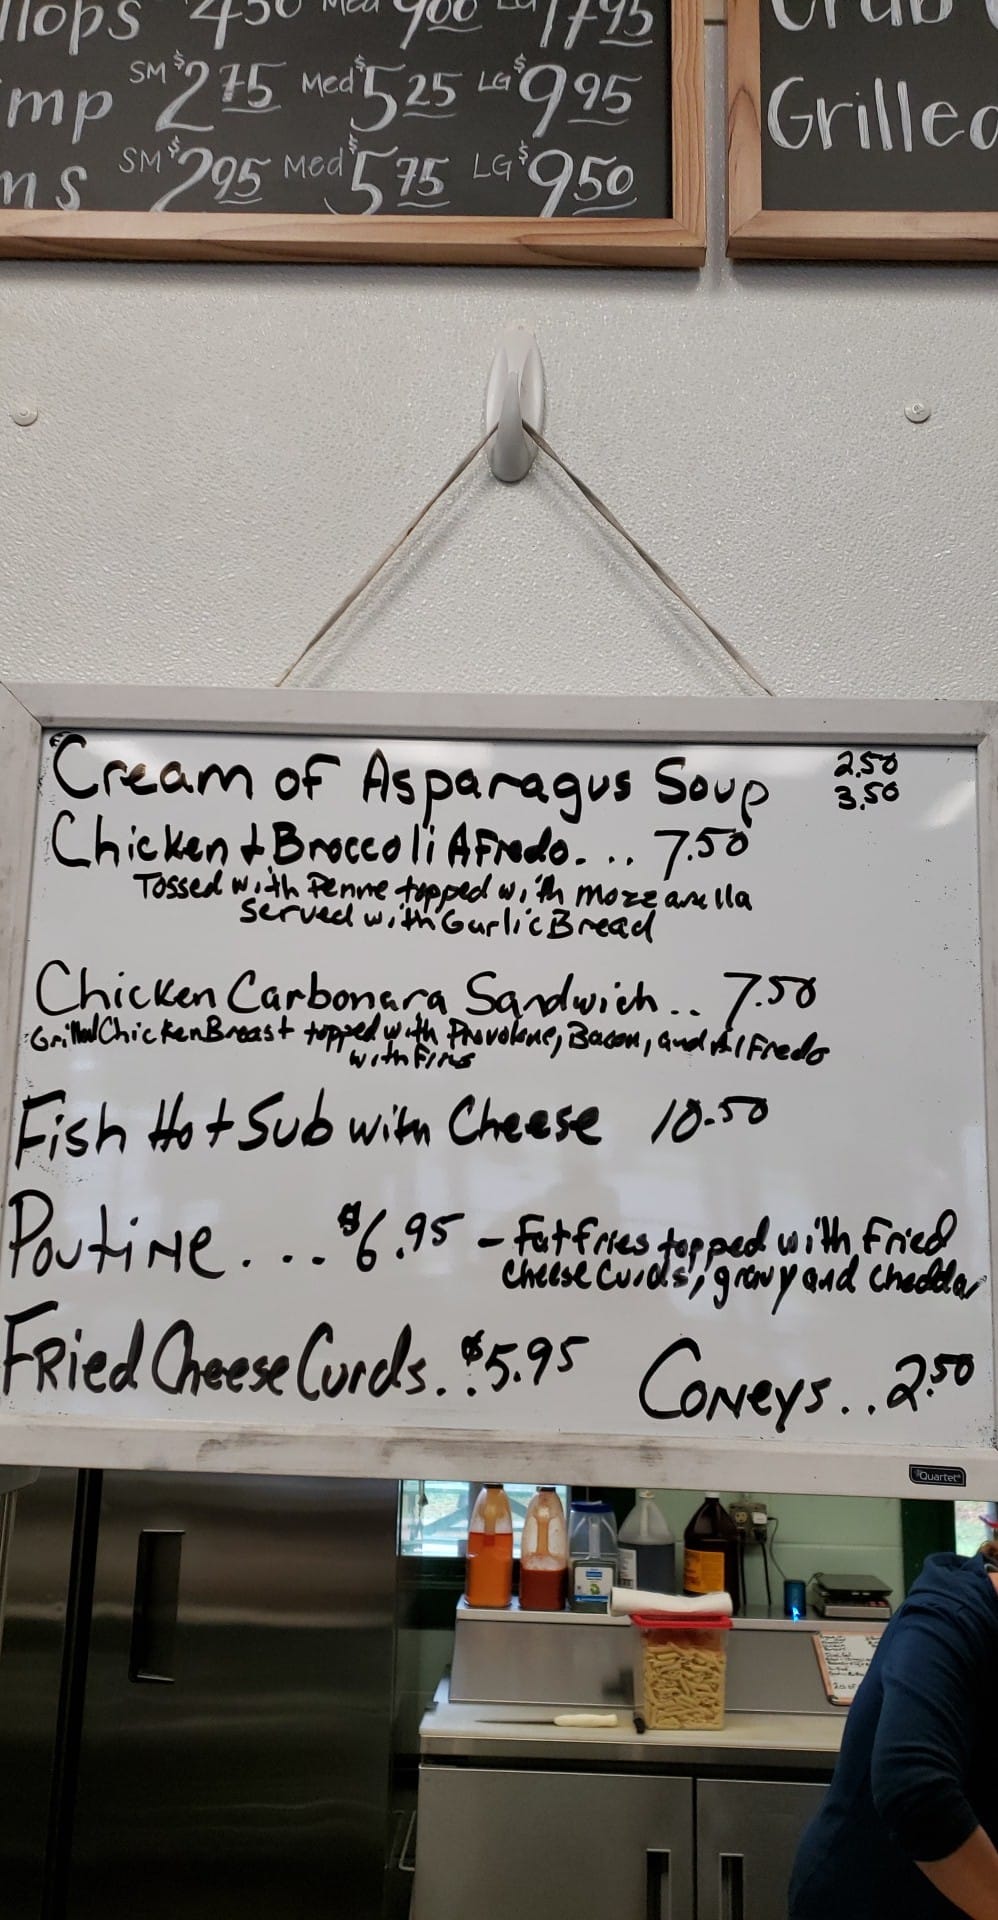 $4.50 Med 9.00 LG 17.95
SM $2.75 Med $5.25 LG $9.95
SM $2.95 Med $5.75 LG $9.50
Grilled
Cream of Asparagus Soup 2.50
3.50
Chicken & Broccoli Afredo... 7.50
Tossed with Penne topped with mozzarella
served with Garlic Bread
Chicken Carbonara Sandwich.. 7.50
Grilled Chicken Breast topped with Provolone, Bacon, and Alfredo
with Fries
Fish Hot Sub with Cheese 10.50
Poutine.... $6.95 - Fat fries topped with Fried
Cheese Curds, gravy and cheddar
FRied Cheese Curds.. $5.95 Coneys.. 2.50
Quartet